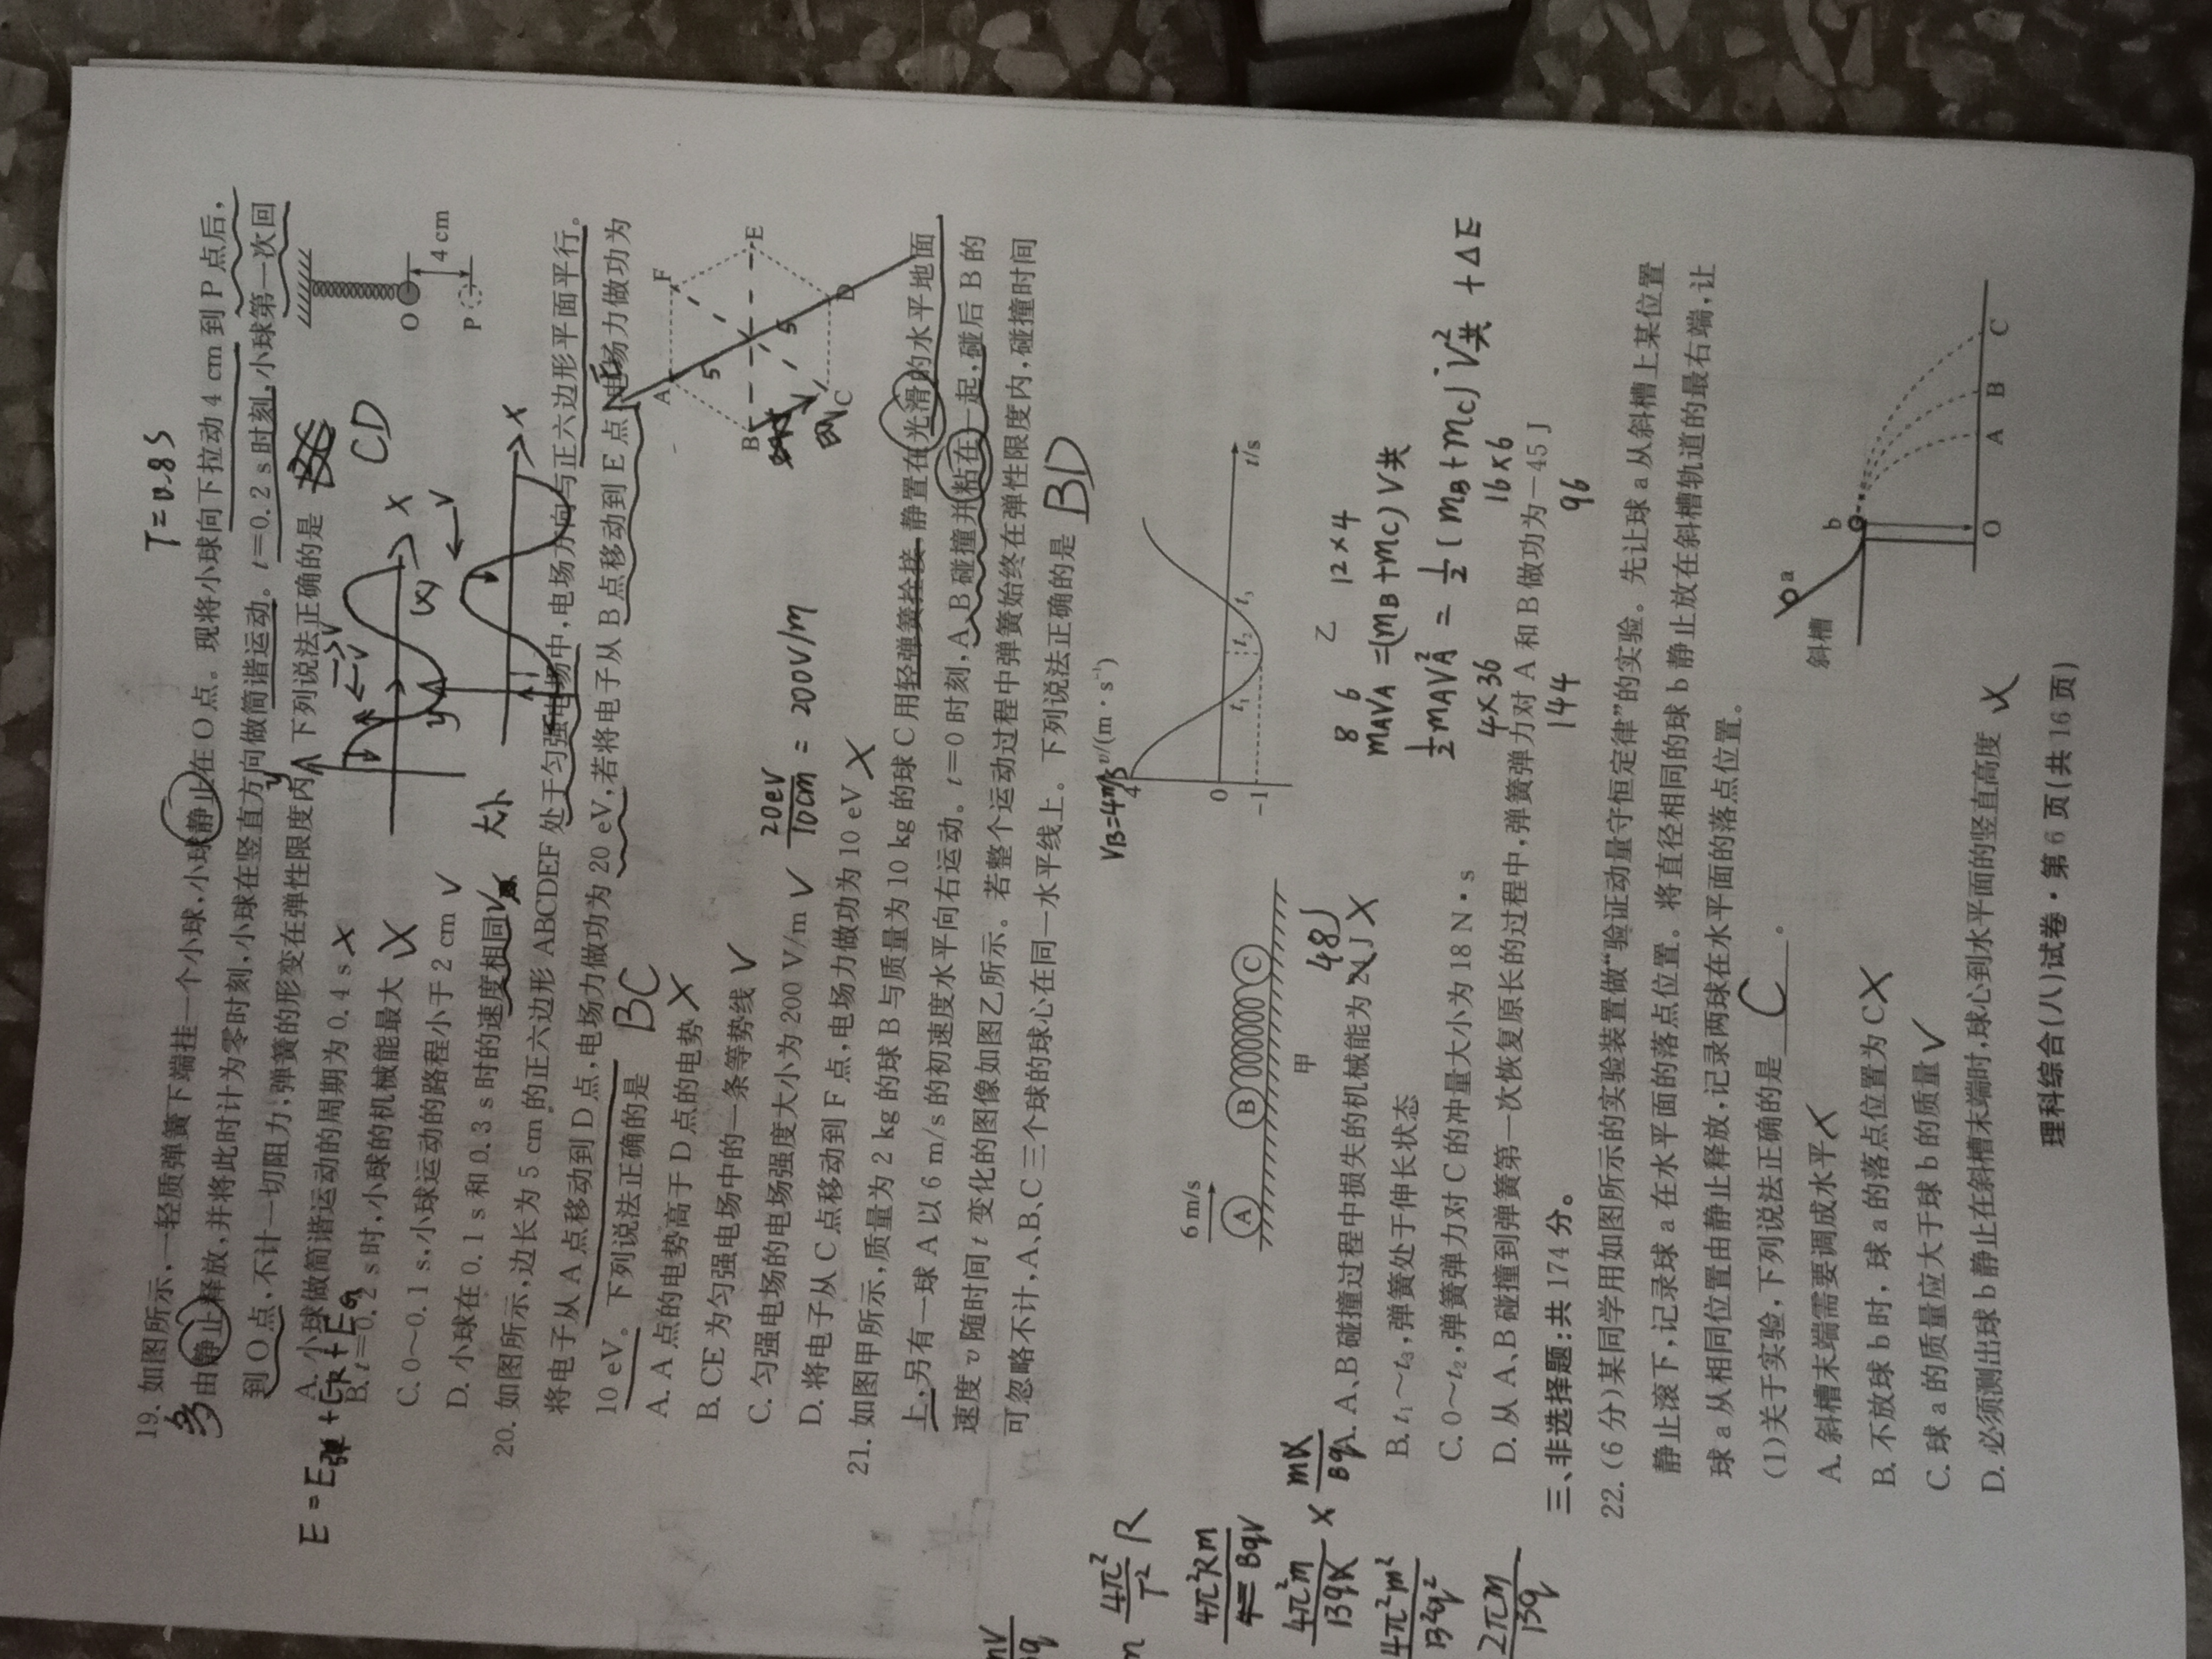 T=0.8S
19. 如图所示,一轻质弹簧下端挂一个小球,小球静止在 O 点。现将小球向下拉动 4 cm 到 P 点后,
多由静止释放,并将此时计为零时刻,小球在竖直方向做简谐运动。t=0.2 s 时刻,小球第一次回
到 O 点,不计一切阻力,弹簧的形变在弹性限度内,下列说法正确的是 CD
A. 小球做简谐运动的周期为 0.4 s ×
B. t=0.2 s 时,小球的机械能最大 ×
C. 0～0.1 s,小球运动的路程小于 2 cm √
D. 小球在 0.1 s 和 0.3 s 时的速度相同 √
O
P
4 cm
20. 如图所示,边长为 5 cm 的正六边形 ABCDEF 处于匀强电场中,电场方向与正六边形平面平行。
将电子从 A 点移动到 D 点,电场力做功为 20 eV,若将电子从 B 点移动到 E 点,电场力做功为
10 eV。下列说法正确的是 BC
A. A 点的电势高于 D 点的电势 ×
B. CE 为匀强电场中的一条等势线 √
C. 匀强电场的电场强度大小为 200 V/m √
20eV/10cm = 200V/m
D. 将电子从 C 点移动到 F 点,电场力做功为 10 eV ×
A F
B E
C D
5 5
21. 如图甲所示,质量为 2 kg 的球 B 与质量为 10 kg 的球 C 用轻弹簧拴接,静置在光滑的水平地面
上,另有一球 A 以 6 m/s 的初速度水平向右运动。t=0 时刻,A、B 碰撞并粘在一起,碰后 B 的
速度 v 随时间 t 变化的图像如图乙所示。若整个运动过程中弹簧始终在弹性限度内,碰撞时间
可忽略不计,A、B、C 三个球的球心在同一水平线上。下列说法正确的是 BD
6 m/s
A B C
甲
VB=4m/s
v/(m·s⁻¹)
4
0
-1
t₁ t₂ t₃ t/s
乙
A. A、B 碰撞过程中损失的机械能为 24 J × 48J
B. t₁～t₃,弹簧处于伸长状态
C. 0～t₂,弹簧弹力对 C 的冲量大小为 18 N·s
D. 从 A、B 碰撞到弹簧第一次恢复原长的过程中,弹簧弹力对 A 和 B 做功为－45 J
8 6 12×4
mAVA=(mB+mC)V共
½mAVA²=½(mB+mC)V共²+ΔE
4×36 16×6
144 96
三、非选择题:共 174 分。
22. (6 分)某同学用如图所示的实验装置做“验证动量守恒定律”的实验。先让球 a 从斜槽上某位置
静止滚下,记录球 a 在水平面的落点位置。将直径相同的球 b 静止放在斜槽轨道的最右端,让
球 a 从相同位置由静止释放,记录两球在水平面的落点位置。
(1)关于实验,下列说法正确的是 C 。
A. 斜槽末端需要调成水平 ×
B. 不放球 b 时,球 a 的落点位置为 C ×
C. 球 a 的质量应大于球 b 的质量 √
D. 必须测出球 b 静止在斜槽末端时,球心到水平面的竖直高度 ×
斜槽
a
b
O A B C
理科综合(八)试卷·第 6 页(共 16 页)